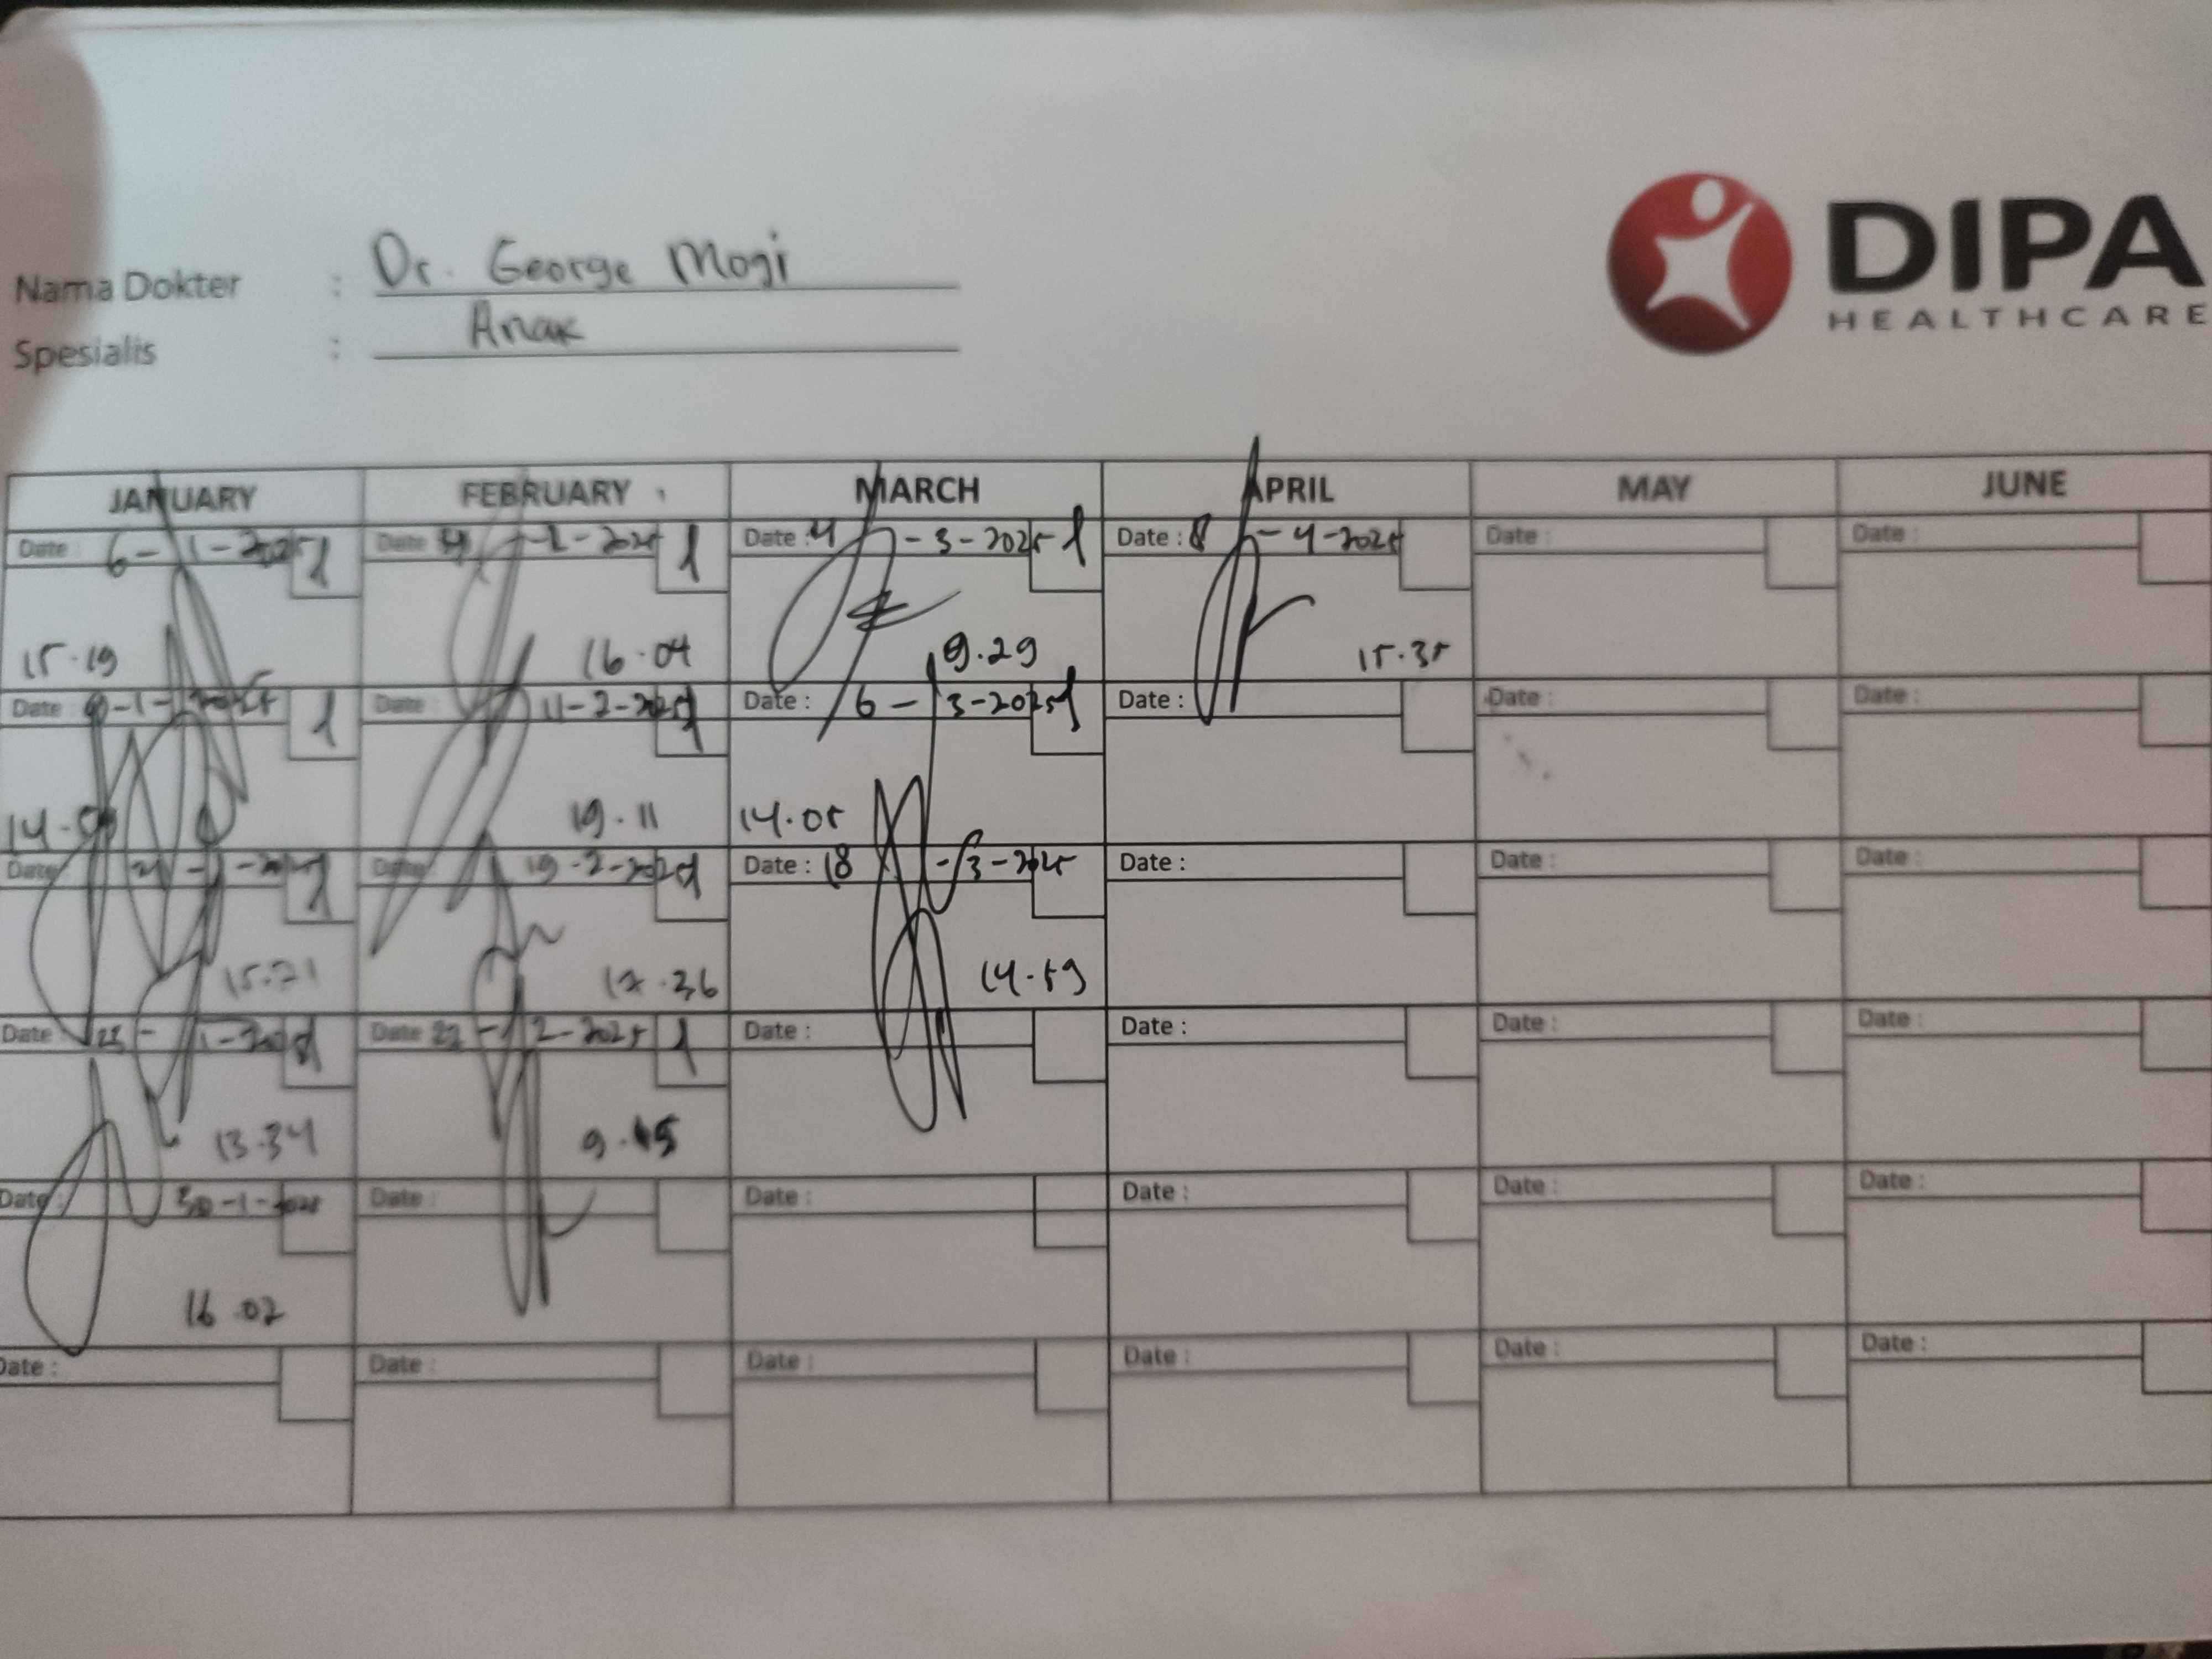 DIPA
HEALTHCARE
Nama Dokter : Dr. George Mogi
Spesialis : Anak
JANUARY FEBRUARY MARCH APRIL MAY JUNE
Date 6-1-2025 1 Date 4-2-2025 1 Date : 4-3-2025 1 Date : 8-4-2025 Date : Date :
15.19 16.04 9.29 15.35
Date 9-1-2025 1 Date 11-2-2025 1 Date : 6-3-2025 1 Date : Date : Date :
14. 19.11 14.05
Date 21-1-2025 1 Date 19-2-2025 1 Date : 18-3-2025 Date : Date : Date :
15.21 17.36 14.59
Date 23-1-2025 1 Date 22-2-2025 1 Date : Date : Date : Date :
13.34 9.45
Date : 30-1-2025 Date : Date : Date : Date : Date :
16.02
Date : Date : Date : Date : Date : Date :